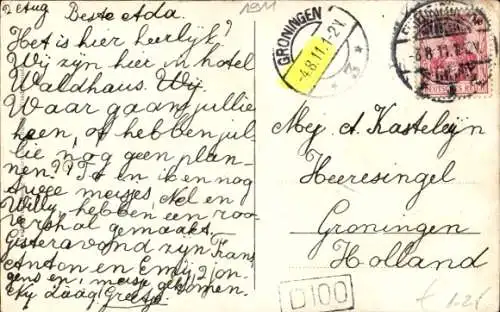 2 Aug Beste Ada.
Het is hier heerlijk?
Wij zijn hier in hotel
Waldhaus. Wij
Waar gaan jullie
heen, of hebben jul
lie nog geen plan-
nen? P. T en ik en nog
twee meisjes, Nel en
Willy, hebben een roo-
vershol gemaakt.
Gisteravond zijn Frans
Anton en Emij, 2 jon-
gens en, meisje gekomen.
daag! Greetje.
1911
GRONINGEN
-4.8.11. 1-2V.
* 3 *
8.11.
DEUTSCHES REICH
Mej. A. Kasteleyn
Heeresingel
Groningen
Holland
D100